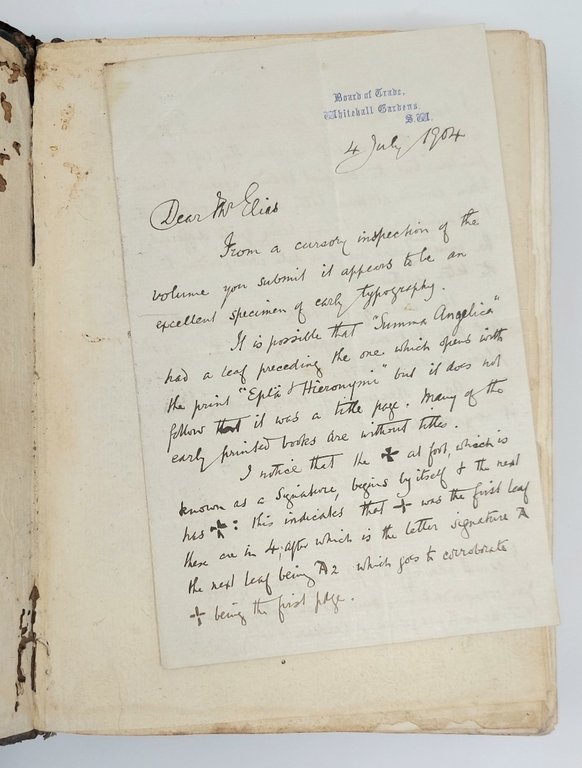 Board of Trade,
Whitehall Gardens
S.W.
4 July 1904
Dear Mr Elias
From a cursory inspection of the
volume you submit it appears to be an
excellent specimen of early typography.
It is possible that "Summa Angelica"
had a leaf preceding the one which opens with
the print "Epla Hieronymi" but it does not
follow that it was a title page. Many of the
early printed books are without titles.
I notice that the ✠ at foot, which is
known as a signature, begins by itself & the next
has ✠: this indicates that ✠ was the first leaf
these are in 4, after which is the letter signature A
the next leaf being A2 which goes to corroborate
✠ being the first page.